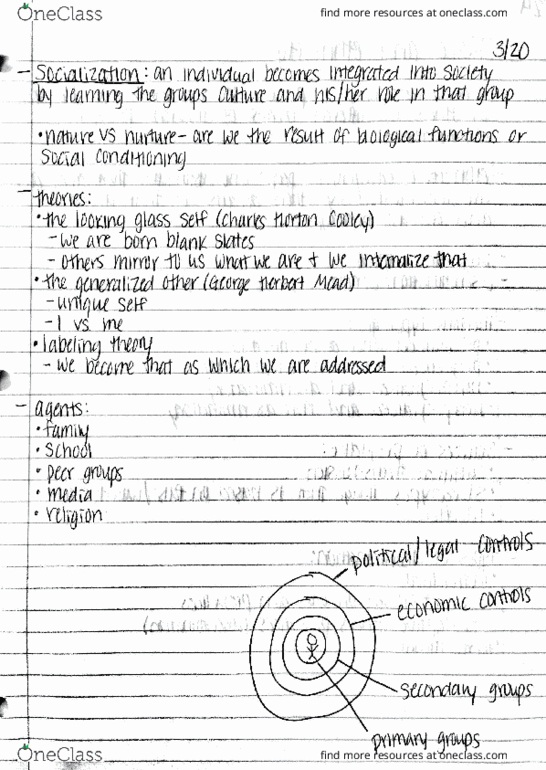 OneClass
find more resources at oneclass.com
3/20
- Socialization: an individual becomes integrated into society
by learning the groups culture and his/her role in that group
• nature vs nurture - are we the result of biological functions or
social conditioning
- theories:
• the looking glass self (Charles Horton Cooley)
- we are born blank slates
- others mirror to us what we are + we internalize that
• the generalized other (George Herbert Mead)
- unique self
- I vs me
• labeling theory
- we become that as which we are addressed
- agents:
• family
• school
• peer groups
• media
• religion
political/legal controls
economic controls
secondary groups
primary groups
OneClass
find more resources at oneclass.com